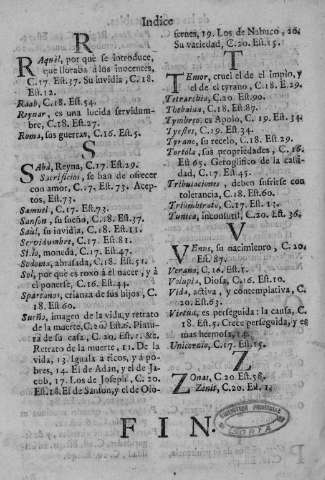 Indice
R
RAquèl, por què se introduce,
que lloraba à los inocentes,
C.17. Est.37. Su invidia, C. 18.
Est. 12.
Raab, C.18. Est.54.
Reynar, es una lucida servidum-
bre, C.18. Est.27.
Roma, sus guerras, C.16. Est.5.
S
SAbà, Reyna, C.17. Est.29.
Sacrificios, se han de ofrecer
con amor, C.17. Est. 73. Acep-
tos, Est.73.
Samuel, C.17. Est.73.
Sansòn, su sueño, C.18. Est. 37.
Saùl, su invidia, C.18. Est. 13.
Servidumbre, C.17. Est. 81.
moneda, C.17. Est.47.
Sodoma, abrasada, C.18. Est.51.
Sol, por què es roxo à el nacer, y à
el ponerse, C.16. Est. 44.
Spartanos, crianza de sus hijos, C.
18. Est.60.
Sueño, imagen de la vida, y retrato
de la muerte, C.20. Est.6. Pintu-
ra de su casa, C.20. Est.1. &c.
Retrato de la muerte, 11. De la
vida, 13. Iguala à ricos, y à po-
bres, 14. El de Adan, y el de Ja-
cob, 17. Los de Joseph, C. 20.
Est.18. El de Sansòn, y el de Olo-
fernes, 19. Los de Nabuco, 20.
Su variedad, C.20. Est.15.
T
TEmor, cruel el de el Impio, y
el de el tyrano, C.18. E.29.
Tetrarchia, C.20. Est.90.
Thobaida, C.18. Est.87.
Tymbreo, es Apolo, C.19. Est. 34.
Tyestes, C.19. Est.34.
Tyrano, su recelo, C.18. Est.29.
Tortola, sus propriedades, C.16.
Est 65. Geroglifico de la casti-
dad, C.17. Est.45.
Tribulaciones, deben sufrirse con
tolerancia, C.18. Est.60.
Triumbirato, C.17. Est.13.
Tunica, inconsutil, C.20. Est. 36.
V
VEnus, su nacimiento, C. 20.
Est. 87.
Verano, C.16. Est.1.
Volupia, Diosa, C.16. Est.10.
Vida, activa, y contemplativa, C.
20. Est.63.
Virtud, es perseguida: la causa, C.
18. Est.5. Crece perseguida, y es
mas hermosa, 14.
Unicornio, C.17. Est.15.
Z
ZOnas, C.20. Est.58.
Zenit, C.20. Est. 1.
FIN